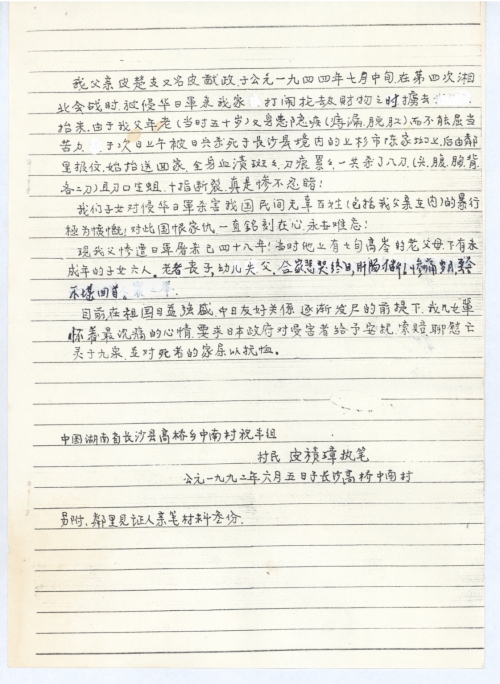 我父亲皮楚支又名皮献政于公元一九四四年七月中旬，在第四次湘
北会战时，被侵华日军来我家 打闹抢劫财物之时掳去
抬来，由于我父年老(当时五十岁)又身患隐疾(痔漏，脱肛)而不能胜当
苦力， 于次日上午被日兵杀死于长沙县境内的上杉市陈家坳上，后由邻
里报信，始抬送回家，全身血渍斑斑，刀痕累累，一共杀了八刀(头，腹，腕，背
各二刀)且刀口生蛆，十指断裂，真是惨不忍睹!
我们子女对侵华日军杀害我国民间无辜百姓(包括我父亲在内)的暴行
极为愤慨，对此国恨家仇，一直铭刻在心，永世难忘!
现我父惨遭日军屠杀已四十八年!当时他上有七旬高岑的老父母，下有未
成年的子女六人。老者丧子，幼儿失父，合家悲哭终日，肝肠 惨痛岁月，
不堪回首。
目前在祖国日益强盛，中日友好关係逐渐发尸的前提下，我儿女輩
怀着最沉痛的心情，要求日本政府对受害者给予安抚，索赔，聊慰亡
灵于九泉，並对死者的家属以抚恤。
中国湖南省长沙县高桥乡中南村祝丰组
村民 皮 执笔
公元一九九二年六月五日于长沙高桥中南村
另附，邻里见证人亲笔材料叁份.